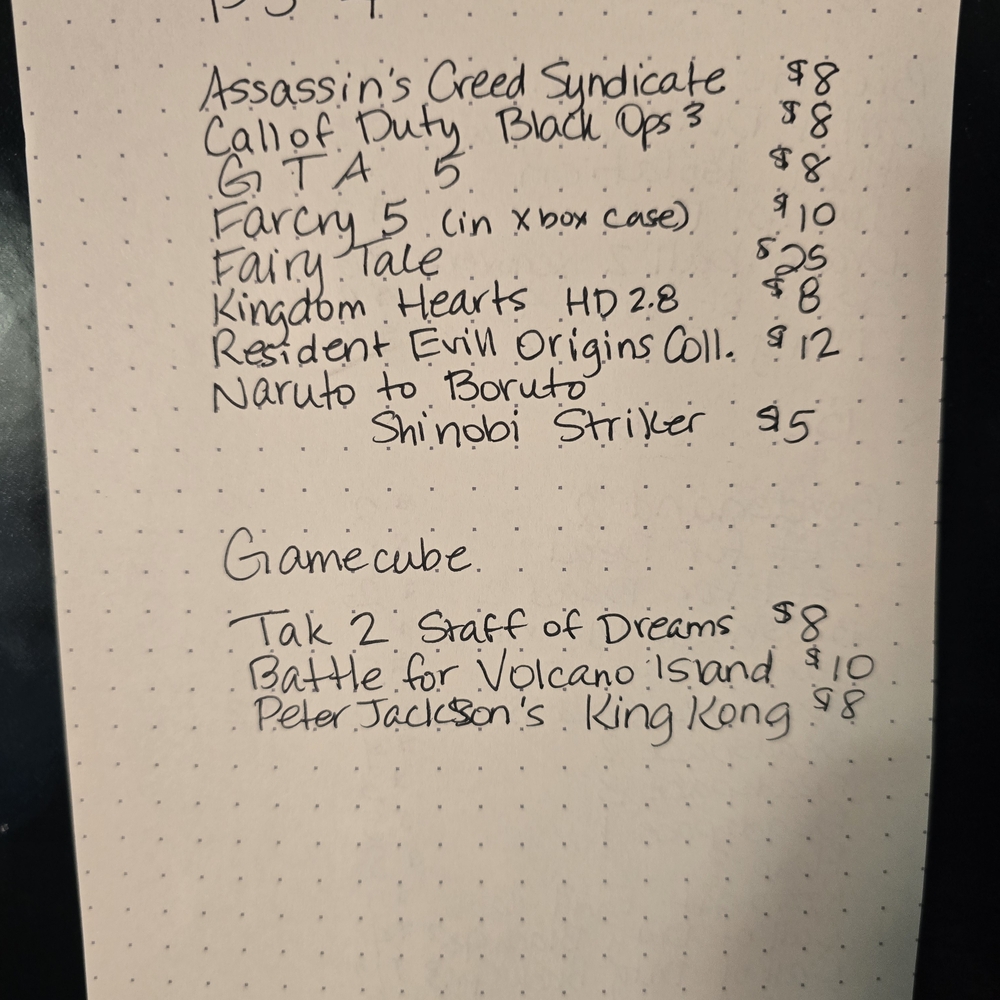 PS 4
Assassin's Creed Syndicate $8
Call of Duty Black Ops 3 $8
G T A 5 $8
Farcry 5 (in xbox case) $10
Fairy Tale $25
Kingdom Hearts HD 2.8 $8
Resident Evill Origins Coll. $12
Naruto to Boruto
Shinobi Striker $5
Gamecube
Tak 2 Staff of Dreams $8
Battle for Volcano Island $10
Peter Jackson's King Kong $8